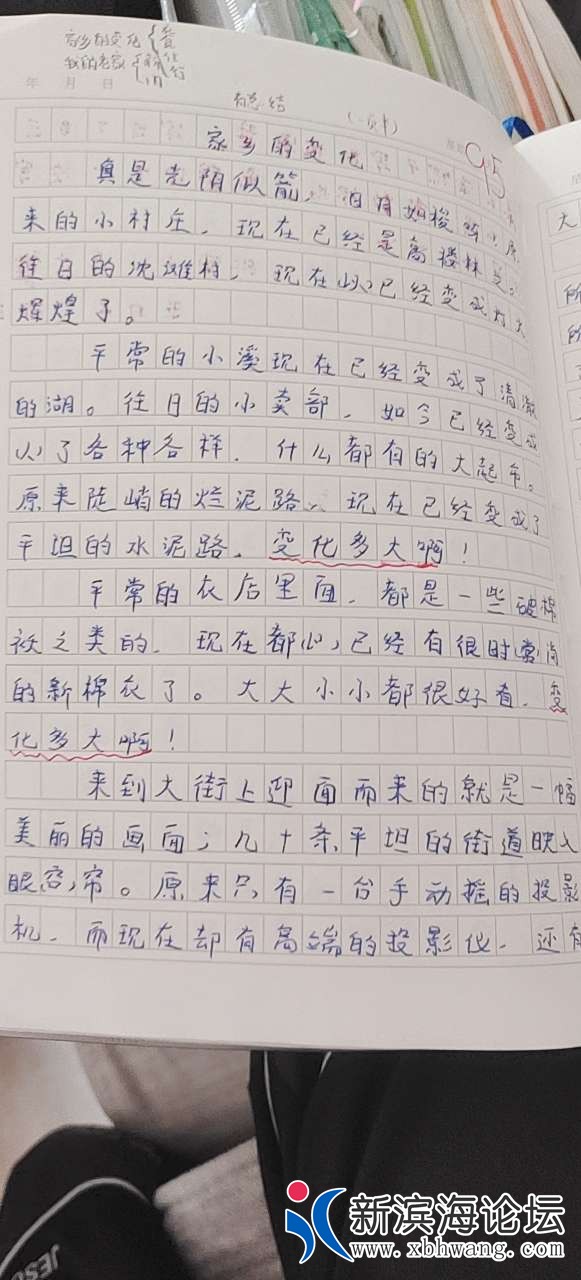 家乡的变化
我的老家
年 月 日
有总结
家乡的变化
95
真是光阴似箭，日月如梭啊！原
来的小村庄，现在已经是高楼林立。
往日的沈滩村，现在以已经变成灯火
辉煌了。
平常的小溪现在已经变成了清澈
的湖。往日的小卖部，如今已经变成
了各种各样，什么都有的大起市。
原来陡峭的烂泥路，现在已经变成了
平坦的水泥路，变化多大啊！
平常的衣后里面，都是一些破棉
袄之类的，现在都已经有很时尚
的新棉衣了。大大小小都很好看，变
化多大啊！
来到大街上迎面而来的就是一幅
美丽的画面；几十条平坦的街道映入
眼帘。原来只有一台手动摇的投影
机，而现在却有高端的投影仪，还有
大
所
所
JESS
新滨海论坛
www.xbhwang.com